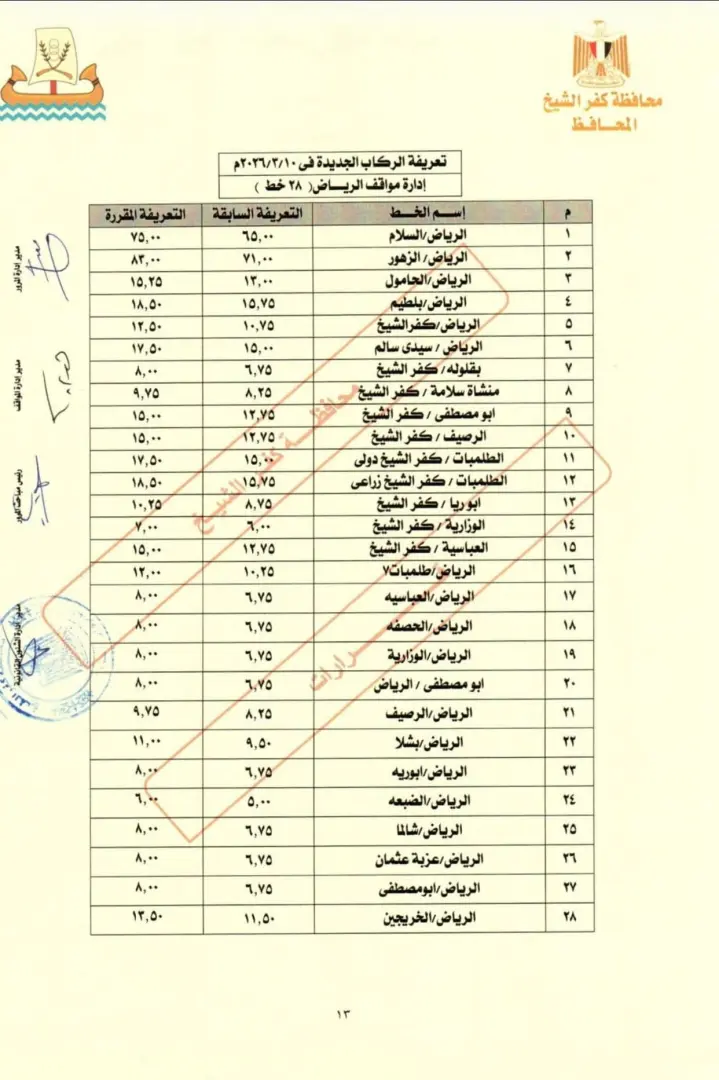 محافظة كفر الشيخ
المحافظ
تعريفة الركاب الجديدة فى ٢٠٢٦/٣/١٠م
إدارة مواقف الرياض( ٢٨ خط )
م إسم الخط التعريفة السابقة التعريفة المقررة
١ الرياض/السلام ٦٥,٠٠ ٧٥,٠٠
٢ الرياض/ الزهور ٧١,٠٠ ٨٢,٠٠
٣ الرياض/الحامول ١٣,٠٠ ١٥,٢٥
٤ الرياض/بلطيم ١٥,٧٥ ١٨,٥٠
٥ الرياض/كفر الشيخ ١٠,٧٥ ١٢,٥٠
٦ الرياض / سيدى سالم ١٥,٠٠ ١٧,٥٠
٧ بقلوله/ كفر الشيخ ٦,٧٥ ٨,٠٠
٨ منشاة سلامة / كفر الشيخ ٨,٢٥ ٩,٧٥
٩ ابو مصطفى / كفر الشيخ ١٢,٧٥ ١٥,٠٠
١٠ الرصيف / كفر الشيخ ١٢,٧٥ ١٥,٠٠
١١ الطلمبات / كفر الشيخ دولى ١٥,٠٠ ١٧,٥٠
١٢ الطلمبات / كفر الشيخ زراعى ١٥,٧٥ ١٨,٥٠
١٣ ابوريا / كفر الشيخ ٨,٧٥ ١٠,٢٥
١٤ الوزارية / كفر الشيخ ٦,٠٠ ٧,٠٠
١٥ العباسية / كفر الشيخ ١٢,٧٥ ١٥,٠٠
١٦ الرياض/طلمبات٧ ١٠,٢٥ ١٢,٠٠
١٧ الرياض/العباسيه ٦,٧٥ ٨,٠٠
١٨ الرياض/الحصفه ٦,٧٥ ٨,٠٠
١٩ الرياض/الوزارية ٦,٧٥ ٨,٠٠
٢٠ ابو مصطفى / الرياض ٦,٧٥ ٨,٠٠
٢١ الرياض/الرصيف ٨,٢٥ ٩,٧٥
٢٢ الرياض/بشلا ٩,٥٠ ١١,٠٠
٢٣ الرياض/ابوريه ٦,٧٥ ٨,٠٠
٢٤ الرياض/الضبعه ٥,٠٠ ٦,٠٠
٢٥ الرياض/شالما ٦,٧٥ ٨,٠٠
٢٦ الرياض/عزبة عثمان ٦,٧٥ ٨,٠٠
٢٧ الرياض/ابومصطفى ٦,٧٥ ٨,٠٠
٢٨ الرياض/الخريجين ١١,٥٠ ١٣,٥٠
محافظة كفر الشيخ
مدير إدارة المرور
مدير إدارة المواقف
رئيس مباحث المرور
مدير إدارة الشئون القانونية
١٣